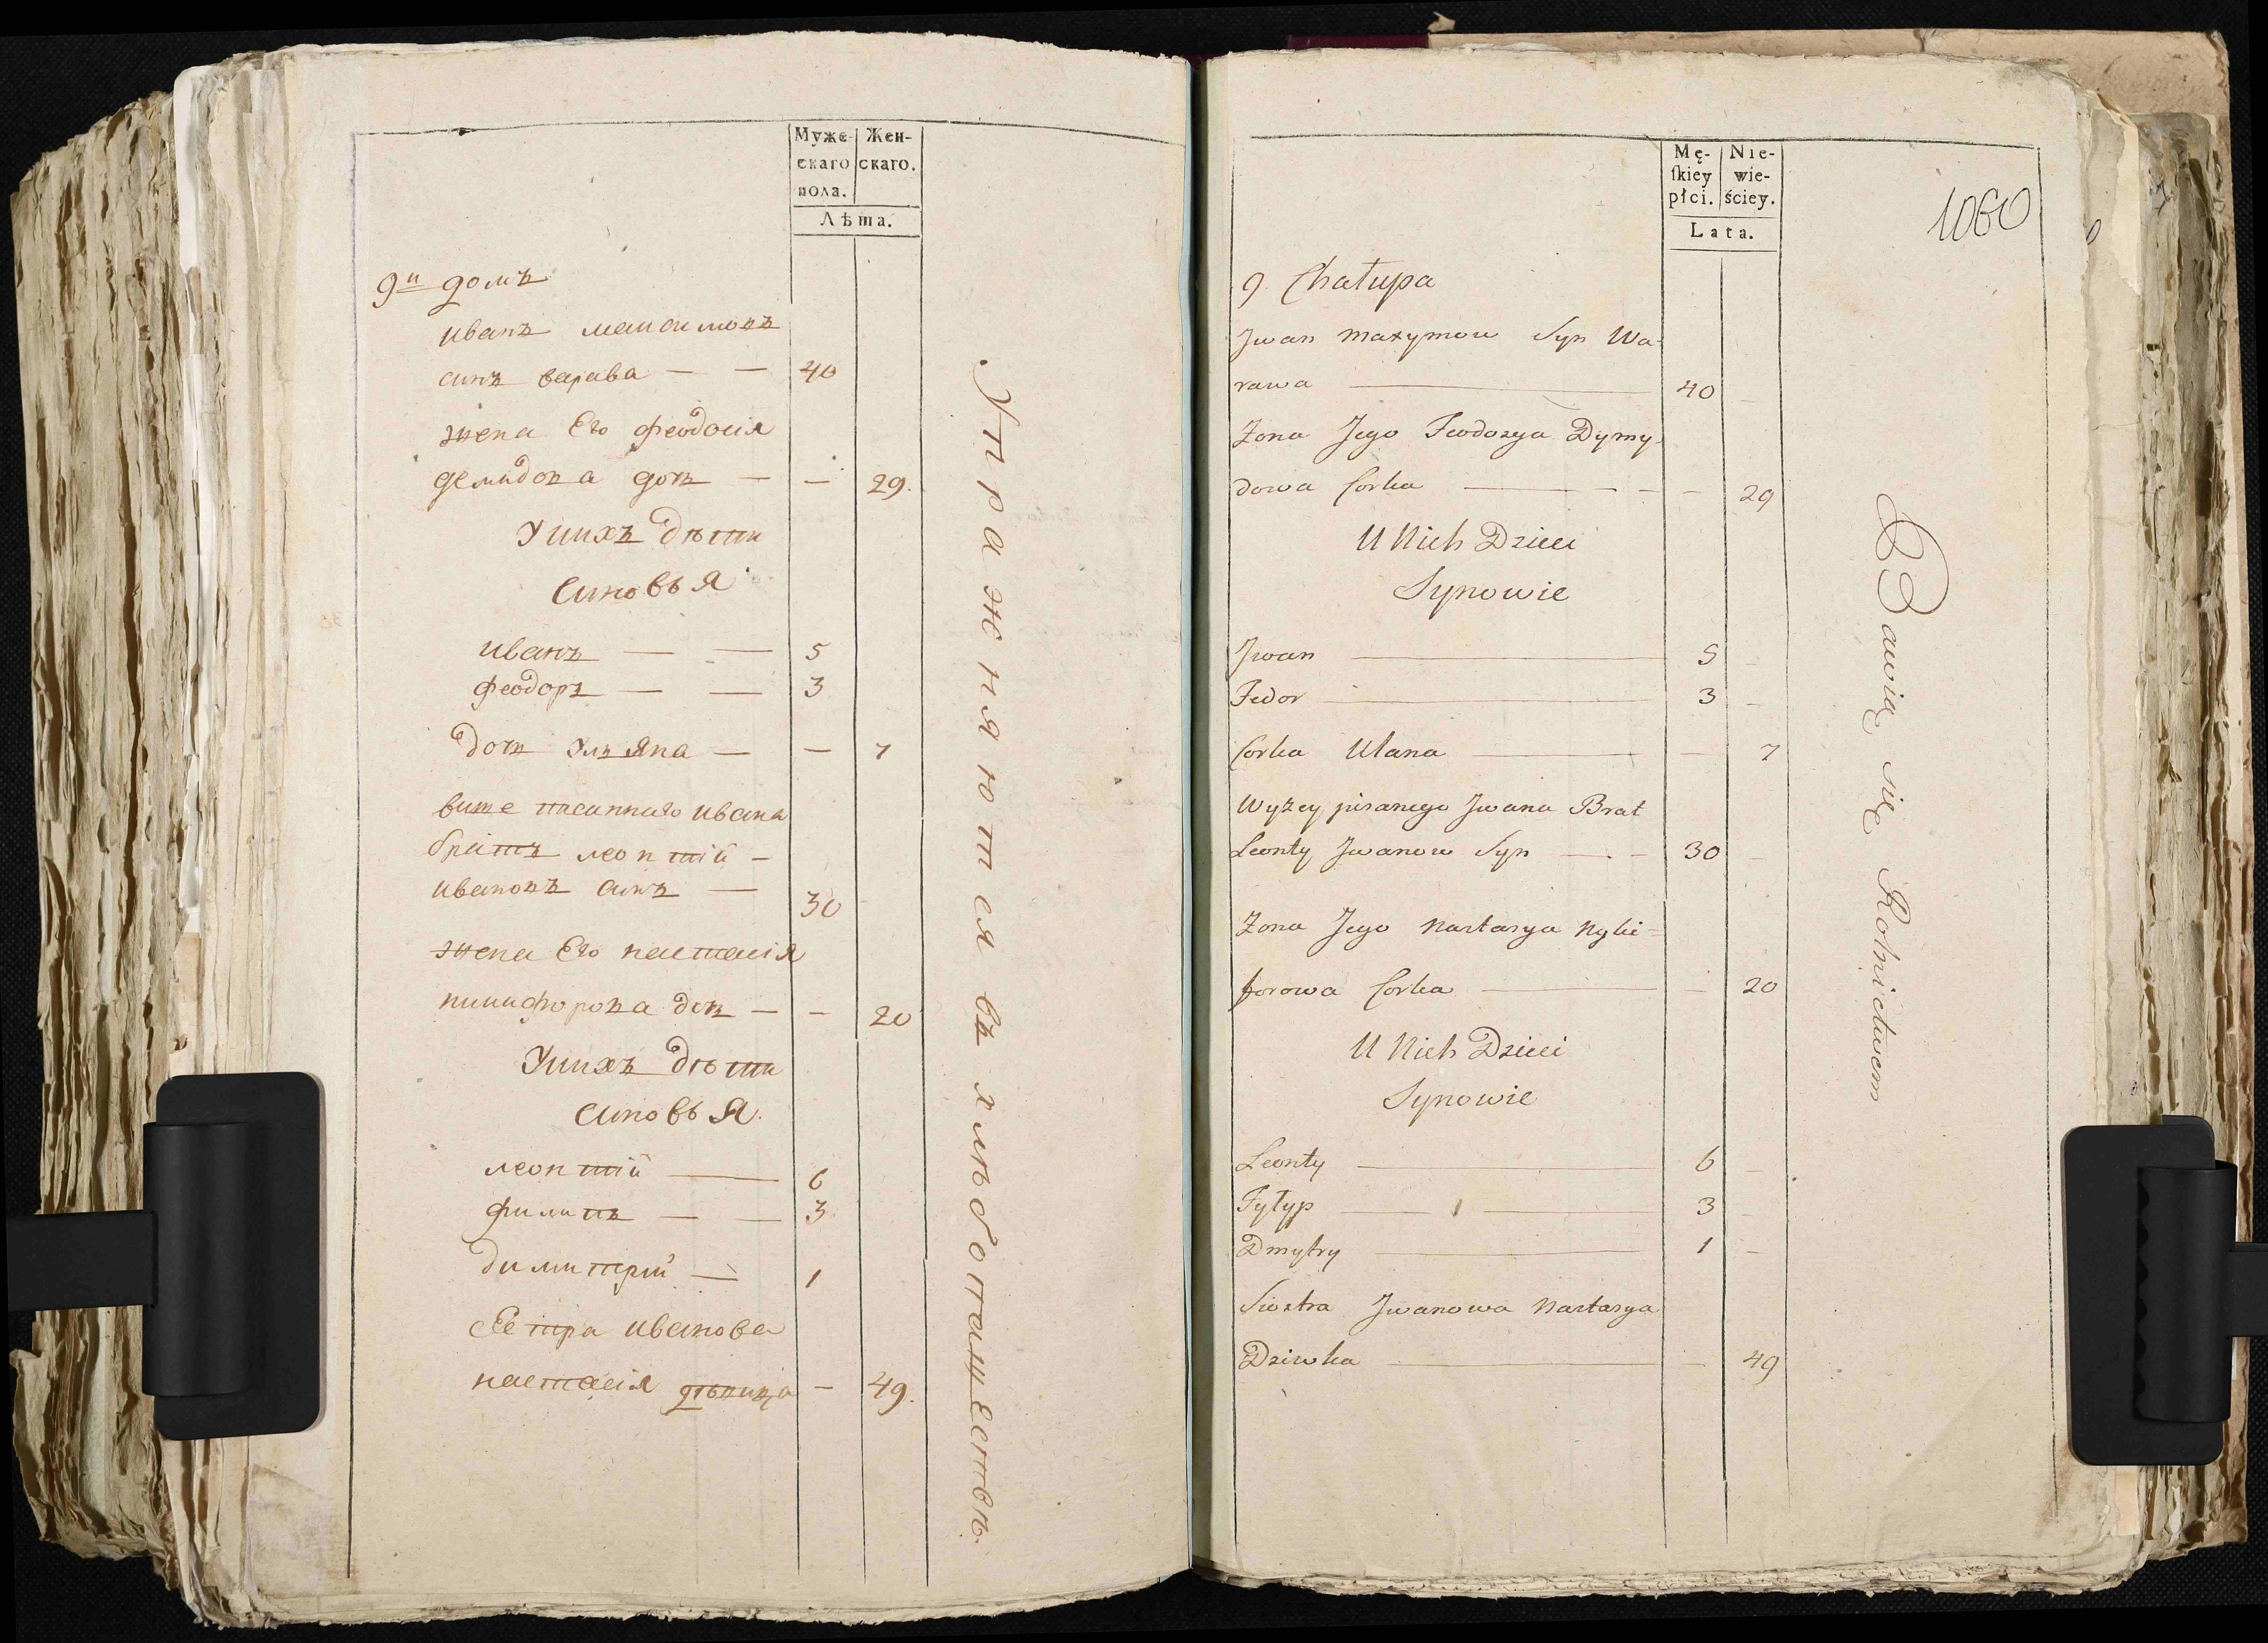 Муже- Жен-
скаго скаго.
пола.
Лѣта.
9й домъ
иванъ максимовъ
синъ варава — — 40
жена Его феодосія
демидова дочь — — 29.
У нихъ дѣти
синовья
иванъ — — 5
феодоръ — — 3
дочь Ульяна — — 7
више писаннаго ивана
братъ леонтій —
ивановъ синъ — 30
жена Его настасія
никифорова дочь — — 20
У нихъ дѣти
синовья.
леонтій — 6
филипъ — — 3
димитрій — 1
Сестра иванова
настасія дѣвица — 49.
Упражняются въ хлѣбопашествѣ.
Mę- Nie-
ſkiey wie-
płci. ściey.
Lata.
1060
9. Chałupa
Jwan Maxymow Syn Wa-
rawa — 40
Żona Jego Feodozya Dymy-
dowa Corka — — 29
U Nich Dzieci
Synowie
Jwan — 5
Fedor — 3
Corka Ulana — — 7
Wyżey pisanego Jwana Brat
Leonty Jwanow Syn — 30
Żona Jego Nastasya Nyki-
forowa Corka — — 20
U Nich Dzieci
Synowie
Leonty — 6
Fyłyp — 3
Dmytry — 1
Siostra Jwanowa Nastasya
Dziwka — — 49
Bawią się Rolnictwem